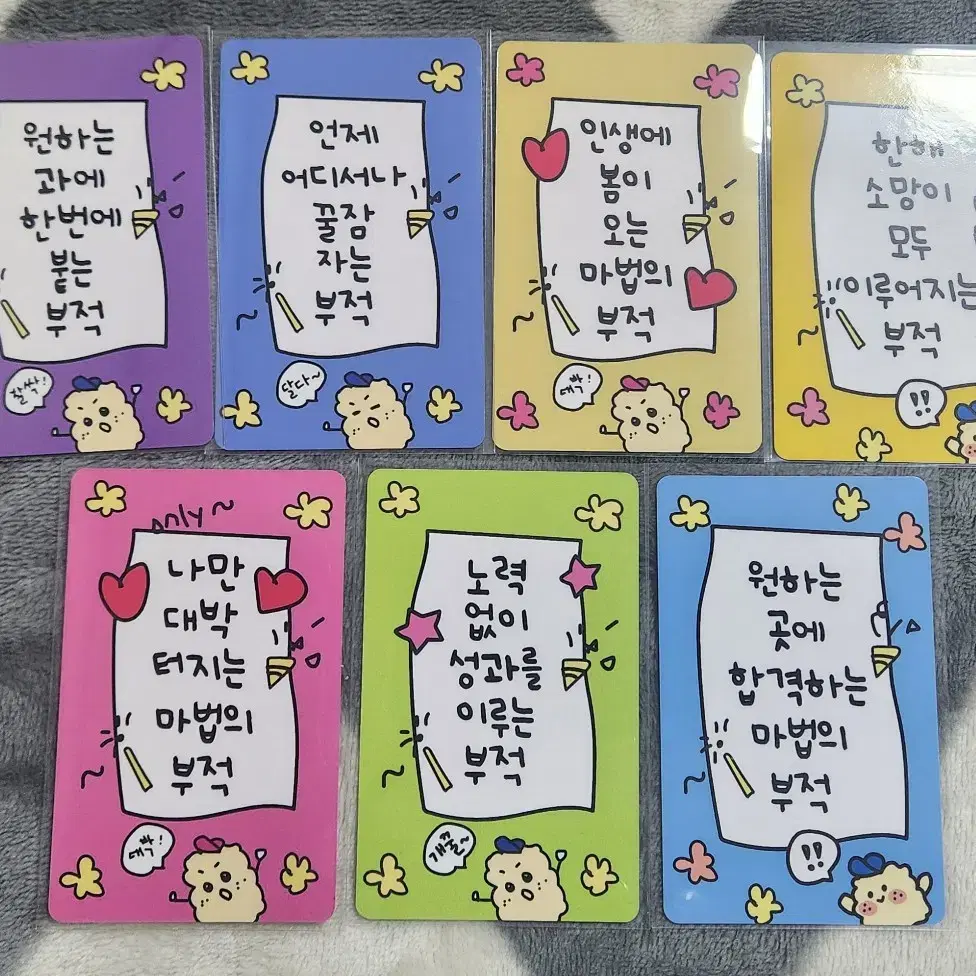 원하는
과에
한번에
붙는
부적
찰싹!
언제
어디서나
꿀잠
자는
부적
달다~
인생에
봄이
오는
마법의
부적
대박!
한해
소망이
모두
이루어지는
부적
!!
only~
나만
대박
터지는
마법의
부적
대박!
노력
없이
성과를
이루는
부적
개꿀~
원하는
곳에
합격하는
마법의
부적
!!